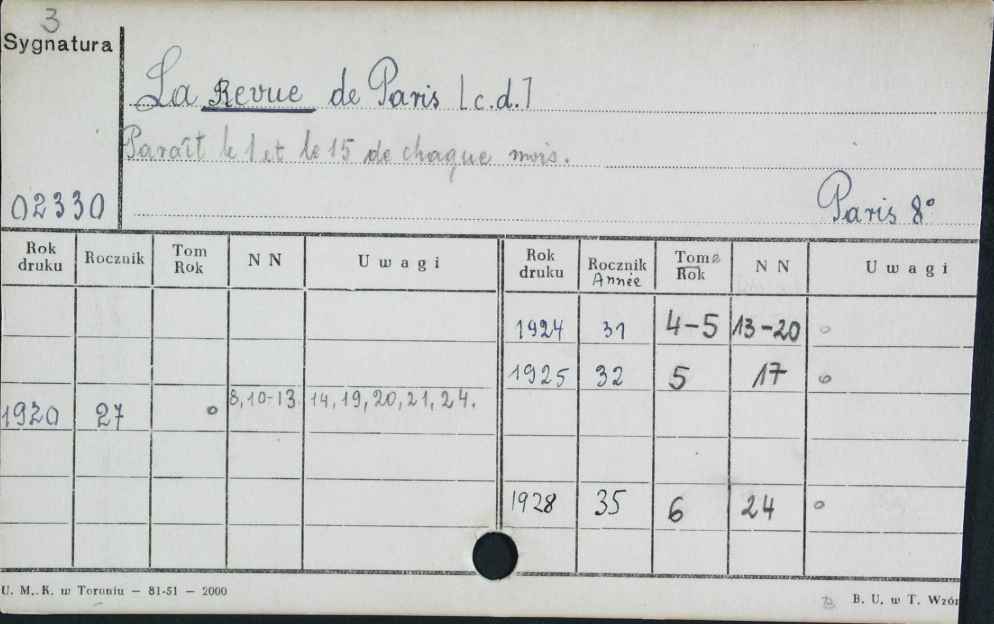 3
Sygnatura
La Revue de Paris [c.d.]
Paraît le 1 et le 15 de chaque mois.
02330
Paris 8°
Rok druku Rocznik Tom Rok N N Uwagi Rok druku Rocznik Année Tome Rok N N Uwagi
1924 31 4-5 13-20 o
1925 32 5 17 o
1920 27 o 8,10-13. 14, 19, 20, 21, 24.
1928 35 6 24 o
U. M. K. w Toruniu — 81-51 — 2000
B. U. w T. Wzór